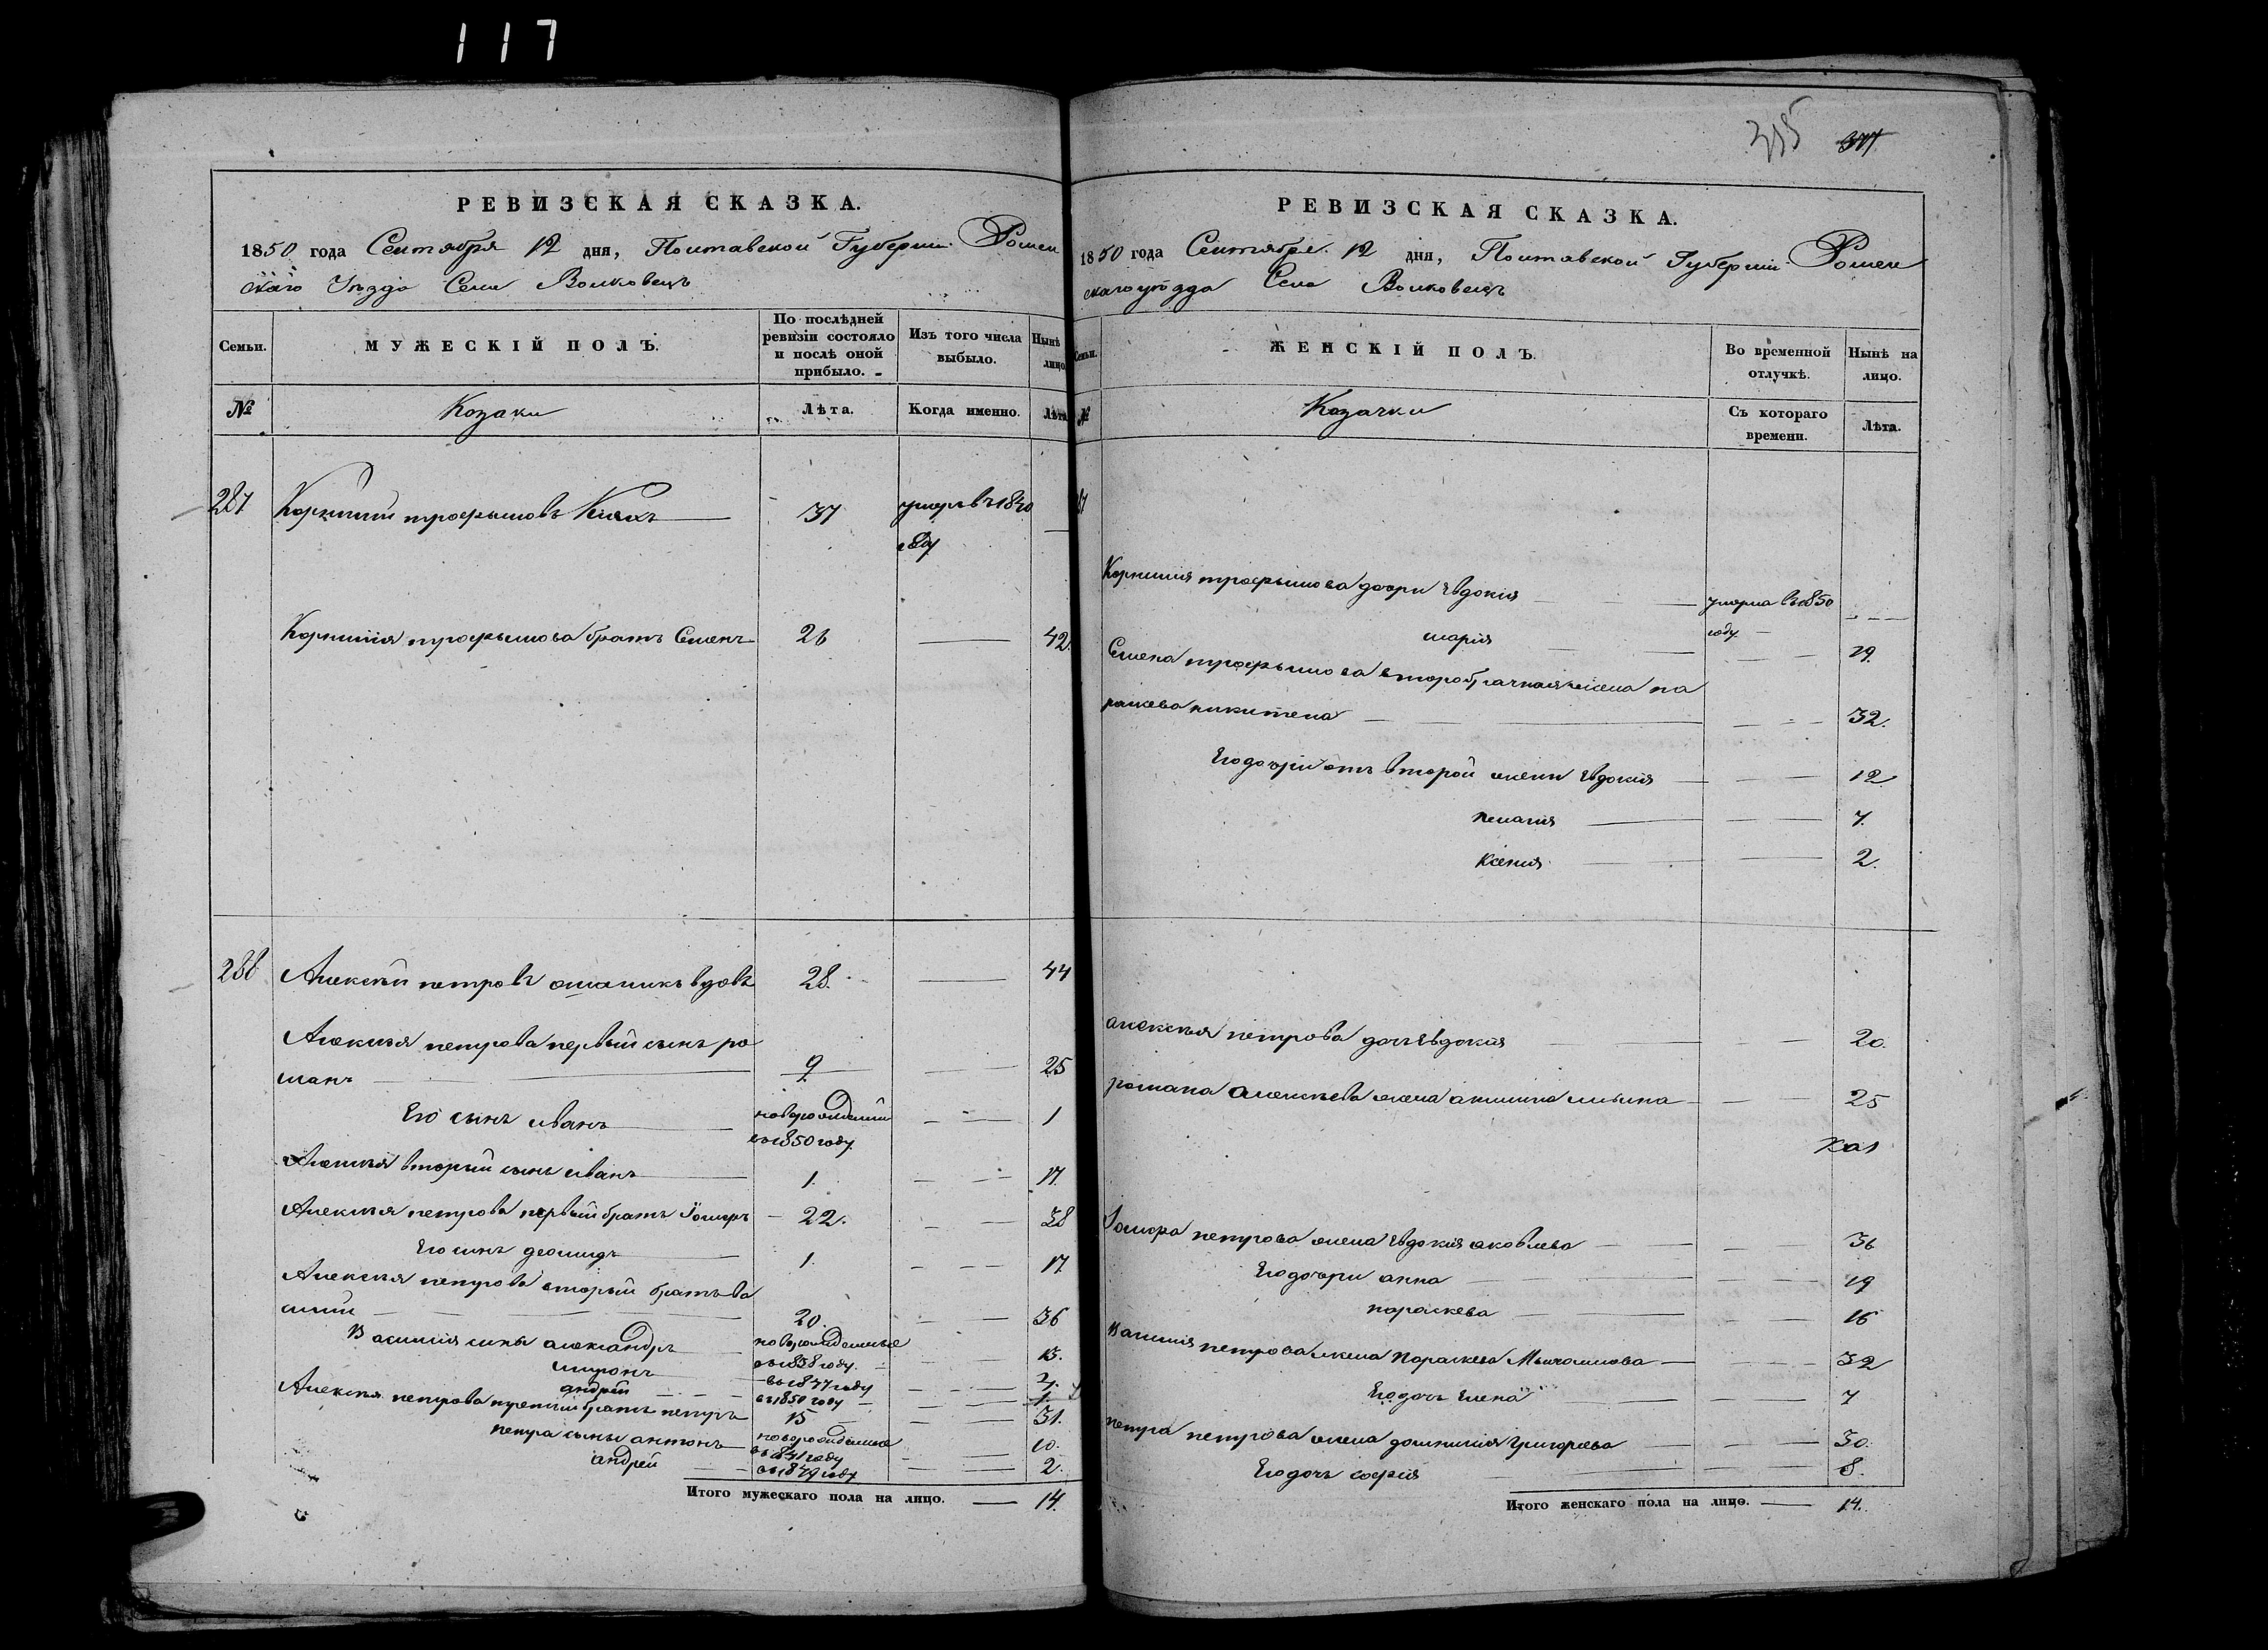 117
РЕВИЗСКАЯ СКАЗКА.
1850 года Сентября 12 дня, Полтавской Губернии Ромен
скаго Уѣзда Села Волковецъ
Семьи.
МУЖЕСКІЙ ПОЛЪ.
По послѣдней ревизіи состояло и послѣ оной прибыло.
Изъ того числа выбыло.
Нынѣ лицо
№
Козаки
Лѣта.
Когда именно.
Лѣта
287 Корнилий трофымовъ 37 умеръ въ 1840
году
Корнилия трофымова братъ Семенъ 26 42.
288 Алексѣй петровъ вдовъ 28. 44
Алексѣя петрова первый сынъ ро
манъ 9 25
Его сынъ иванъ новорожденый 1
въ 1850 году
Алексѣя вторый сынъ иванъ 1. 17.
Алексѣя петрова первый братъ 22. 38
Его сынъ деомидъ 1. 17.
Алексѣя петрова вторый братъ ва
силий 20. 36
Василия сыны александръ новорожденные 13.
въ 1838 году
миронъ въ 1847 году
андрей въ 1850 году 1
Алексѣя петрова третий братъ петръ 15 31.
петра сыны антонъ новорожденные 10.
въ 1841 году
андрей въ 1849 году 2.
Итого мужескаго пола на лицо. 14.
315
РЕВИЗСКАЯ СКАЗКА.
1850 года Сентября 12 дня, Полтавской Губерніи Ромен
скаго уѣзда Села Волковецъ
Семьи.
ЖЕНСКІЙ ПОЛЪ.
Во временной отлучкѣ.
Нынѣ на лицо.
№
Козачки
Съ котораго времени.
Лѣта.
Корнилия трофымова дочри Евдокия умерла въ 1850
году
мария 19.
Семена трофымова второбрачная жена па
раскева никитена 32.
Его дочри отъ второй жены Евдокия 12.
пелагия 7.
Ксения 2.
алексѣя петрова дочь Евдокия 20.
романа алексѣева жена акилина 25
петрова жена Евдокия яковлева 36
Его дочри анна 19
параскева 16
Василия петрова жена Параскева 32
Его дочь Елена 7
петра петрова жена домникия григорева 30.
Его дочь софия 8.
Итого женскаго пола на лицо. 14.